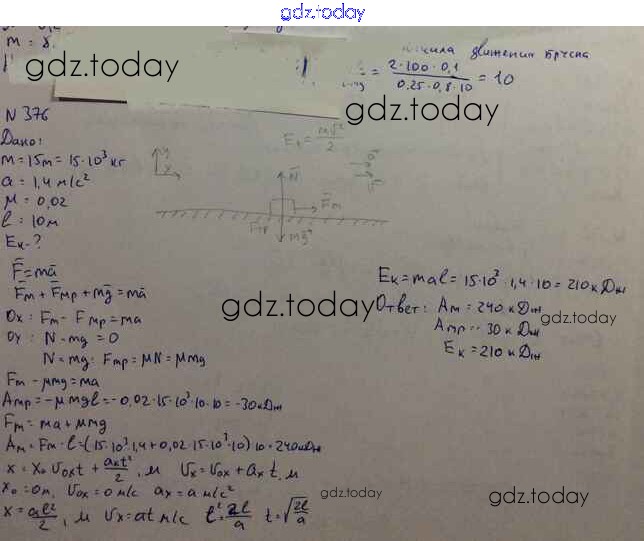 gdz.today
m = 8.
gdz.today
движения бруска
= 2·100·0,1 / 0,25·0,8·10 = 10
gdz.today
N 376
Дано:
m = 15т = 15·10³ кг
a = 1,4 м/с²
μ = 0,02
l = 10м
Eк - ?
Eк = mv²/2
y
x
N̄
F̄т
Fтр
mḡ
ā
v̄
F̄ = mā
F̄т + F̄тр + mḡ = mā
Ox: Fт - Fтр = ma
Oy: N - mg = 0
N = mg; Fтр = μN = μmg
Fт - μmg = ma
Aтр = -μmgl = -0,02·15·10³·10·10 = -30кДж
Fт = ma + μmg
Aт = Fт·l = (15·10³·1,4 + 0,02·15·10³·10)·10 = 240кДж
x = x₀ v₀xt + axt²/2, м vx = v₀x + ax t, м
x₀ = 0м, v₀x = 0 м/с ax = a м/с²
x = at²/2, м vx = at м/с t² = 2l/a t = √2l/a
Eк = mal = 15·10³·1,4·10 = 210кДж
Ответ: Aт = 240кДж
Aтр = -30кДж
Eк = 210кДж
gdz.today
gdz.today
gdz.today
gdz.today